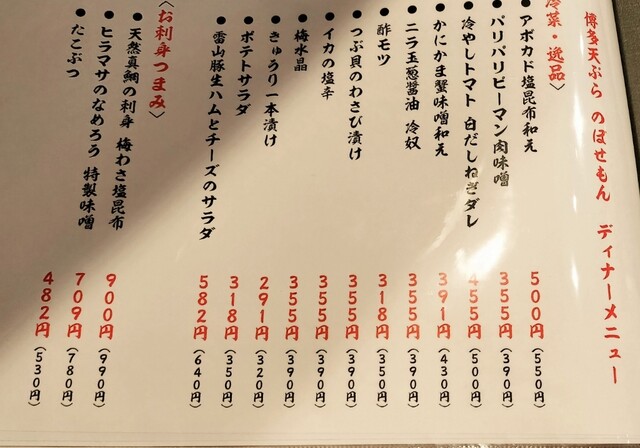 博多天ぷら のぼせもん ディナーメニュー
冷菜・逸品〉
●アボカド塩昆布和え 500円(550円)
●パリパリピーマン肉味噌 355円(390円)
●冷やしトマト 白だしねぎダレ 455円(500円)
●かにかま蟹味噌和え 391円(430円)
●ニラ玉葱醤油 冷奴 355円(390円)
●酢モツ 318円(350円)
●つぶ貝のわさび漬け 355円(390円)
●イカの塩辛 355円(390円)
●梅水晶 355円(390円)
●きゅうり一本漬け 291円(320円)
●ポテトサラダ 318円(350円)
●雷山豚生ハムとチーズのサラダ 582円(640円)
〈お刺身つまみ〉
●天然真鯛の刺身 梅わさ塩昆布 900円(990円)
●ヒラマサのなめろう 特製味噌 709円(780円)
●たこぶつ 482円(530円)